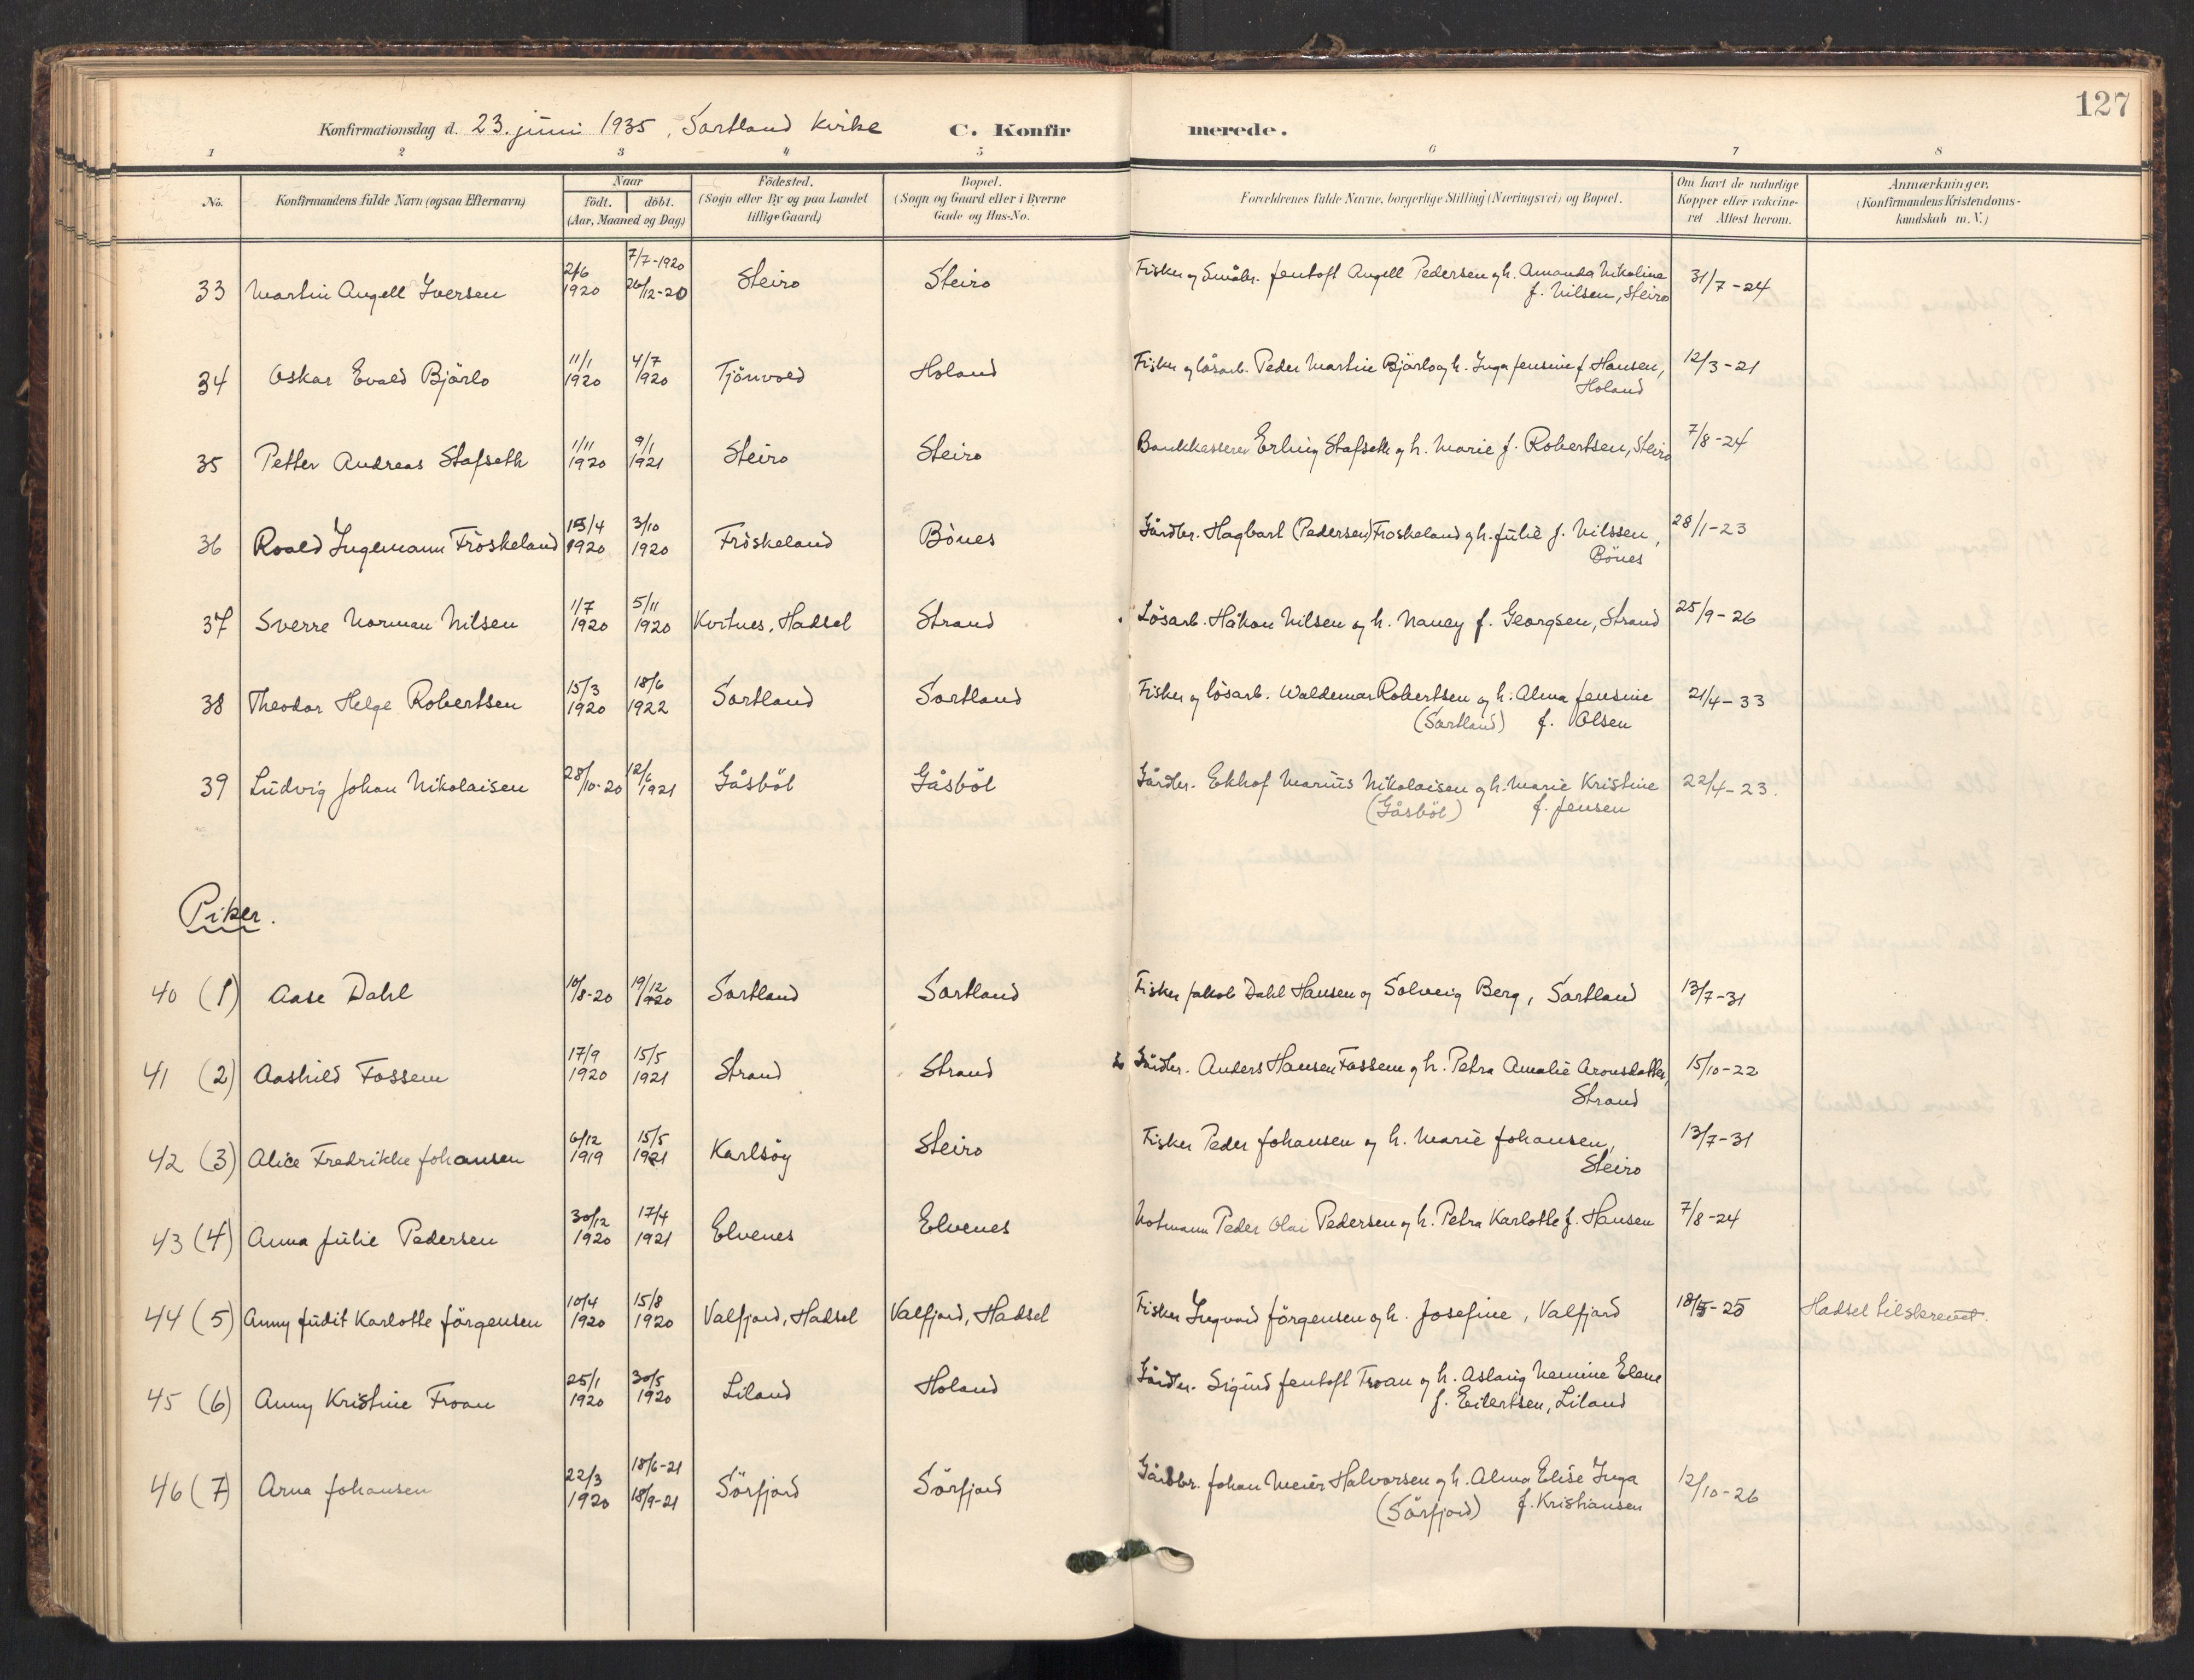 127
Konfirmationsdag d. 23. juni 1935, Sortland kirke C. Konfirmerede.
1 2 3 4 5 6 7 8
No. Konfirmandens fulde Navn (ogsaa Efternavn) Naar født. døbt. (Aar, Maaned og Dag) Födested. (Sogn eller By og paa Landet tillige Gaard) Bopæl. (Sogn og Gaard eller i Byerne Gade og Hus-No. Forældrenes fulde Navne, borgerlige Stilling (Næringsvei) og Bopæl. Om havt de naturlige Kopper eller vakcineret Attest herom. Anmærkninger. (Konfirmandens Kristendomskundskab m. V.)
33 Martin Angell Iversen 2/6 1920 7/7-1920 26/12-20 Steiro Steiro Fisker og Småbr. Jentoft Angell Pedersen og h. Amanda Nikoline f. Nilsen, Steiro 31/7-24
34 Oskar Evald Bjørlo 11/1 1920 4/7 1920 Tjönvold Holand Fisker og løsarb. Peder Martin Bjørlo og h. Inga Jensine f. Hansen, Holand 12/3-21
35 Petter Andreas Stafseth 1/11 1920 9/1 1921 Steiro Steiro Bankkasserer Erling Stafseth og h. Marie f. Robertsen, Steiro 7/8-24
36 Roald Ingemann Fröskeland 15/4 1920 3/10 1920 Fröskeland Bönes Gårdbr. Hagbart (Pedersen) Froskeland og h. Julie f. Nilssen, Bönes 28/1-23
37 Sverre Norman Nilsen 1/7 1920 5/11 1920 Kvitnes, Hadsel Strand Lösarb. Håkon Nilsen og h. Nancy f. Georgsen, Strand 25/9-26
38 Theodor Helge Robertsen 15/3 1920 18/6 1922 Sortland Sortland Fisker og lösarb. Waldemar Robertsen og h. Alma Jensine (Sortland) f. Olsen 21/4-33
39 Ludvig Johan Nikolaisen 28/10-20 12/6 1921 Gåsböl Gåsböl Gårdbr. Ekhof Marius Nikolaisen og h. Marie Kristine (Gåsböl) f. Jensen 22/4-23.
Piker.
40 (1) Aase Dahl 10/8-20 19/12 1920 Sortland Sortland Fisker Jakob Dahl Hansen og Solveig Berg, Sortland 13/7-31
41 (2) Aashild Fossem 17/9 1920 15/5 1921 Strand Strand Gårdbr. Anders Hansen Fossem og h. Petra Amalie Aronsdatter, Strand 15/10-22
42 (3) Alice Fredrikke Johansen 6/12 1919 15/5 1921 Karlsöy Steiro Fisker Peder Johansen og h. Marie Johansen, Steiro 13/7-31
43 (4) Anna Julie Pedersen 30/12 1920 17/4 1921 Elvenes Elvenes Notmann Peder Olai Pedersen og h. Petra Karlotte f. Hansen 7/8-24
44 (5) Anny Judit Karlotte Jörgensen 10/4 1920 15/8 1920 Valfjord, Hadsel Valfjord, Hadsel Fisker Ingvard Jörgensen og h. Josefine, Valfjord 18/5-25 Hadsel tilskrevet.
45 (6) Anny Kristine Froan 25/1 1920 30/5 1920 Liland Holand Gårdbr. Sigurd Jentoft Troan og h. Aslaug Nennine Elene f. Eilertsen, Liland
46 (7) Arna Johansen 22/3 1920 18/6-21 18/9-21 Sörfjord Sörfjord Gårdbr. Johan Meier Halvorsen og h. Alma Elise Inga (Sörfjord) f. Kristiansen 12/10-26